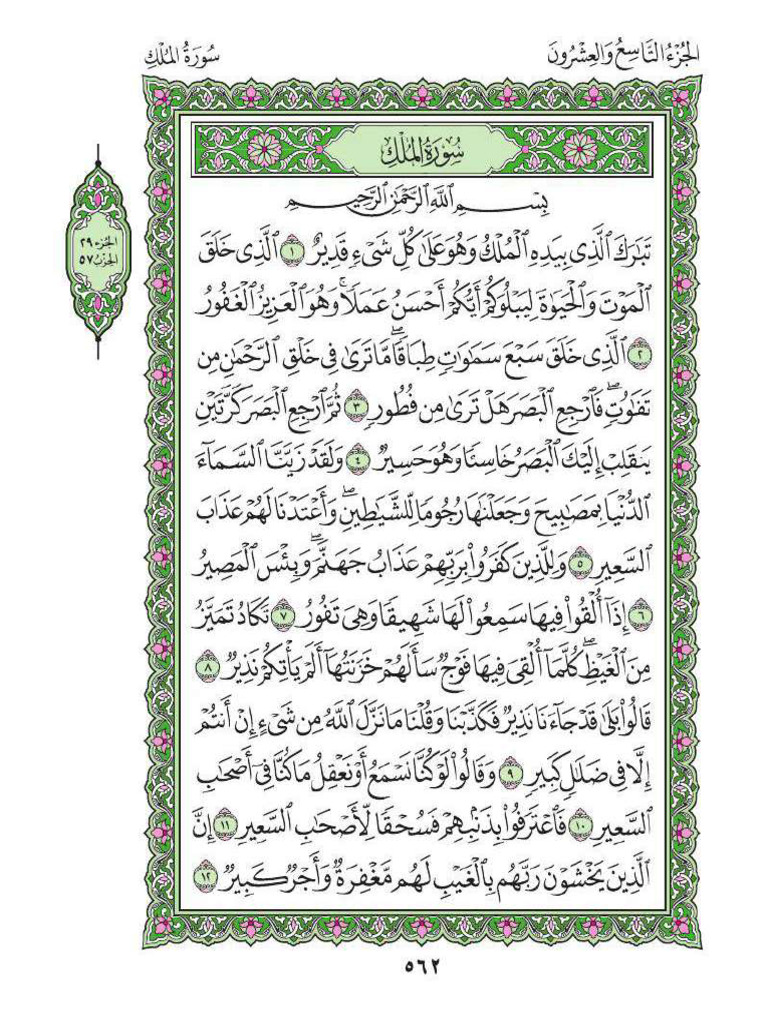 الجُزْءُ التَّاسِعُ وَالعِشْرُونَ
سُورَةُ المُلْكِ
الجزء ٢٩
الحزب ٥٧
سُورَةُ المُلْكِ
بِسْمِ اللَّهِ الرَّحْمَٰنِ الرَّحِيمِ
تَبَٰرَكَ ٱلَّذِى بِيَدِهِ ٱلْمُلْكُ وَهُوَ عَلَىٰ كُلِّ شَىْءٍ قَدِيرٌ ١ ٱلَّذِى خَلَقَ
ٱلْمَوْتَ وَٱلْحَيَوٰةَ لِيَبْلُوَكُمْ أَيُّكُمْ أَحْسَنُ عَمَلًاۚ وَهُوَ ٱلْعَزِيزُ ٱلْغَفُورُ
٢ ٱلَّذِى خَلَقَ سَبْعَ سَمَٰوَٰتٍ طِبَاقًاۖ مَّا تَرَىٰ فِى خَلْقِ ٱلرَّحْمَٰنِ مِن
تَفَٰوُتٍۖ فَٱرْجِعِ ٱلْبَصَرَ هَلْ تَرَىٰ مِن فُطُورٍ ٣ ثُمَّ ٱرْجِعِ ٱلْبَصَرَ كَرَّتَيْنِ
يَنقَلِبْ إِلَيْكَ ٱلْبَصَرُ خَاسِئًا وَهُوَ حَسِيرٌ ٤ وَلَقَدْ زَيَّنَّا ٱلسَّمَآءَ
ٱلدُّنْيَا بِمَصَٰبِيحَ وَجَعَلْنَٰهَا رُجُومًا لِّلشَّيَٰطِينِۖ وَأَعْتَدْنَا لَهُمْ عَذَابَ
ٱلسَّعِيرِ ٥ وَلِلَّذِينَ كَفَرُوا۟ بِرَبِّهِمْ عَذَابُ جَهَنَّمَۖ وَبِئْسَ ٱلْمَصِيرُ
٦ إِذَآ أُلْقُوا۟ فِيهَا سَمِعُوا۟ لَهَا شَهِيقًا وَهِىَ تَفُورُ ٧ تَكَادُ تَمَيَّزُ
مِنَ ٱلْغَيْظِۖ كُلَّمَآ أُلْقِىَ فِيهَا فَوْجٌ سَأَلَهُمْ خَزَنَتُهَآ أَلَمْ يَأْتِكُمْ نَذِيرٌ ٨
قَالُوا۟ بَلَىٰ قَدْ جَآءَنَا نَذِيرٌ فَكَذَّبْنَا وَقُلْنَا مَا نَزَّلَ ٱللَّهُ مِن شَىْءٍ إِنْ أَنتُمْ
إِلَّا فِى ضَلَٰلٍ كَبِيرٍ ٩ وَقَالُوا۟ لَوْ كُنَّا نَسْمَعُ أَوْ نَعْقِلُ مَا كُنَّا فِىٓ أَصْحَٰبِ
ٱلسَّعِيرِ ١٠ فَٱعْتَرَفُوا۟ بِذَنۢبِهِمْ فَسُحْقًا لِّأَصْحَٰبِ ٱلسَّعِيرِ ١١ إِنَّ
ٱلَّذِينَ يَخْشَوْنَ رَبَّهُم بِٱلْغَيْبِ لَهُم مَّغْفِرَةٌ وَأَجْرٌ كَبِيرٌ ١٢
٥٦٢